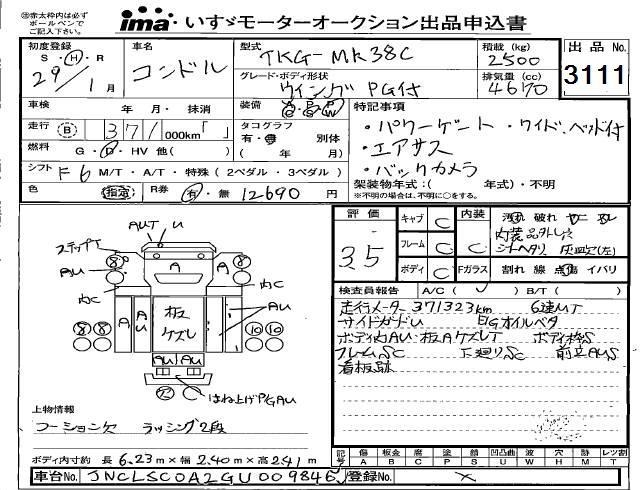 ㊟赤太枠内は必ず
ボールペンで
ご記入下さい。
ima・いすゞモーターオークション出品申込書
初度登録
S・H・R
29/1月
車名
コンドル
型式
TKG-MK38C
積載 (kg)
2500
出品No.
3111
グレード・ボディ形状
ウイング PG付
排気量 (cc)
4670
車検
年・月・抹消
装備
特記事項
走行
B
371
000km「 」
タコグラフ
有・無 別体
( 年 月)
・パワーゲート ・ワイド、ベッド付
・エアサス
・バックカメラ
燃料
G・D・HV 他( )
シフト
F6
M/T・A/T・特殊 (2ペダル・3ペダル)
色
(指定)
R券
有・無
12690円
架装物年式:( 年式)・不明
※不明の場合は、不明に○をする。
評価
3.5
キャブ
C
フレーム
C
ボディ
C
内装
汚れ 破れ
内装品外し穴
シートヘタリ 灰皿欠(左)
Fガラス
割れ 線 点傷 イバリ
検査員報告
A/C ( ) B/T ( )
走行メーター371323km 6速MT
サイドガードU E/Gオイルベタ
ボディ内AU・板Aケズレ ボディ枠S
フレームSC 下廻りSC 前立AUS
看板跡
AUT U
ステップT
AU
内C
A
A
A
AU
板
ケズレ
AU
AU
内C
AU AU
8
8
8
8
10
10
欠
はね上げP/G AU
上物情報
コーション欠 ラッシング2段
ボディ内寸約 長6.23m×幅2.40m×高2.41m
記号
傷 A
板金 B
腐 C
塗 P
錆 S
凹 U
凸凹曲 B
波 W
穴 H
跡 M
レツ割 T
車台No.
JNCLSC0A2GU009846
登録No.
×